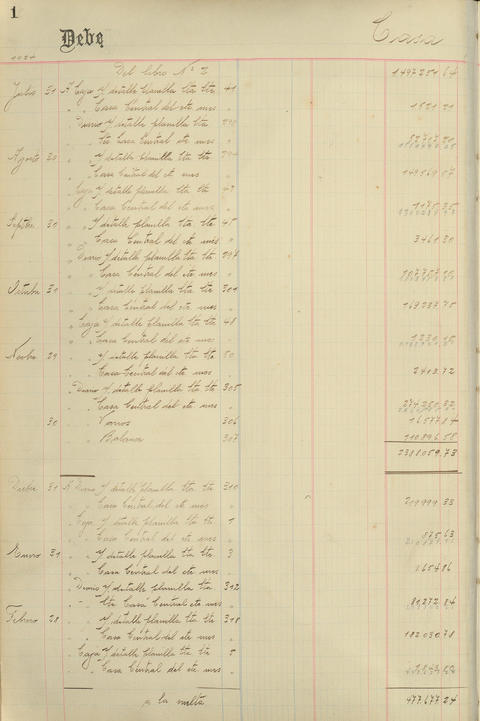 1
Debe Casa
1924
Del libro Nº 2 1497251 64
Julio 31 A Caja S/ detalle planilla cta cte 41
" " Casa Central del cte mes " 1521 21
" Diario S/ detalle planilla cta
" " Casa Central cte mes "
Agosto 30 " S/ detalle planilla cta cte
" Casa Central del cte mes
Caja S/ detalle planilla cta cte 43
" Casa Central del cte mes " 1175 35
Septbre 30 " " S/ detalle planilla cta cte 45
" Casa Central del cte mes " 3461 30
" Diario S/ detalle planilla cta cte 296
" " Casa Central del cte mes "
Octubre 30 " " S/ detalle planilla cta cte 301
" " Casa Central del cte mes " 163237 75
" Caja S/ detalle planilla cta cte 48
" " Casa Central del cte mes " 1230 15
Novbre 29 " " S/ detalle planilla cta cte 50
" " Casa Central del cte mes 2413.72
Diario S/ detalle planilla cta cte 305
" " Casa Central del cte mes " 274250.32
30 " " Varios 306 16577.84
" " Balance 307 110896.58
2388059.73
Dicbre 31 A Diario S/ detalle planilla cta cte 310
" " Casa Central del cte mes " 219999 33
" Caja S/ detalle planilla cta cte 1
" " Casa Central del cte mes " 875 63
Enero 31 " " S/ detalle planilla cta cte 3
" " Casa Central del cte mes " 1654 86
" Diario S/ detalle planilla cta cte 312
" " Casa Central cte mes " 80272 84
Febrero 28 " " S/ detalle planilla cta cte 318
" " Casa Central del cte mes " 182030.78
" Caja S/ detalle planilla cta cte 5
" " Casa Central del cte mes "
a la vuelta 477677.24